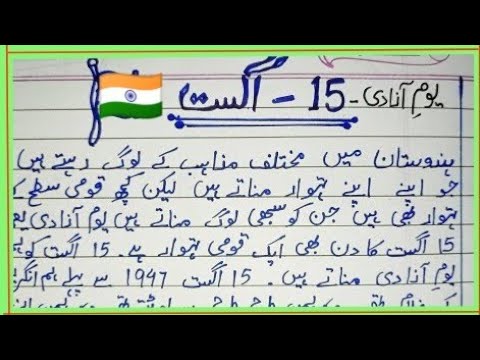 یومِ آزادی - 15 - اگست
ہندوستان میں مختلف مذاہب کے لوگ رہتے ہیں
جو اپنے اپنے تہوار مناتے ہیں لیکن کچھ قومی سطح کے
تہوار بھی ہیں جن کو سبھی لوگ مناتے ہیں یوم آزادی
15 اگست کا دن بھی ایک قومی تہوار ہے۔ 15 اگست کو
یومِ آزادی مناتے ہیں۔ 15 اگست 1947 سے پہلے ہم